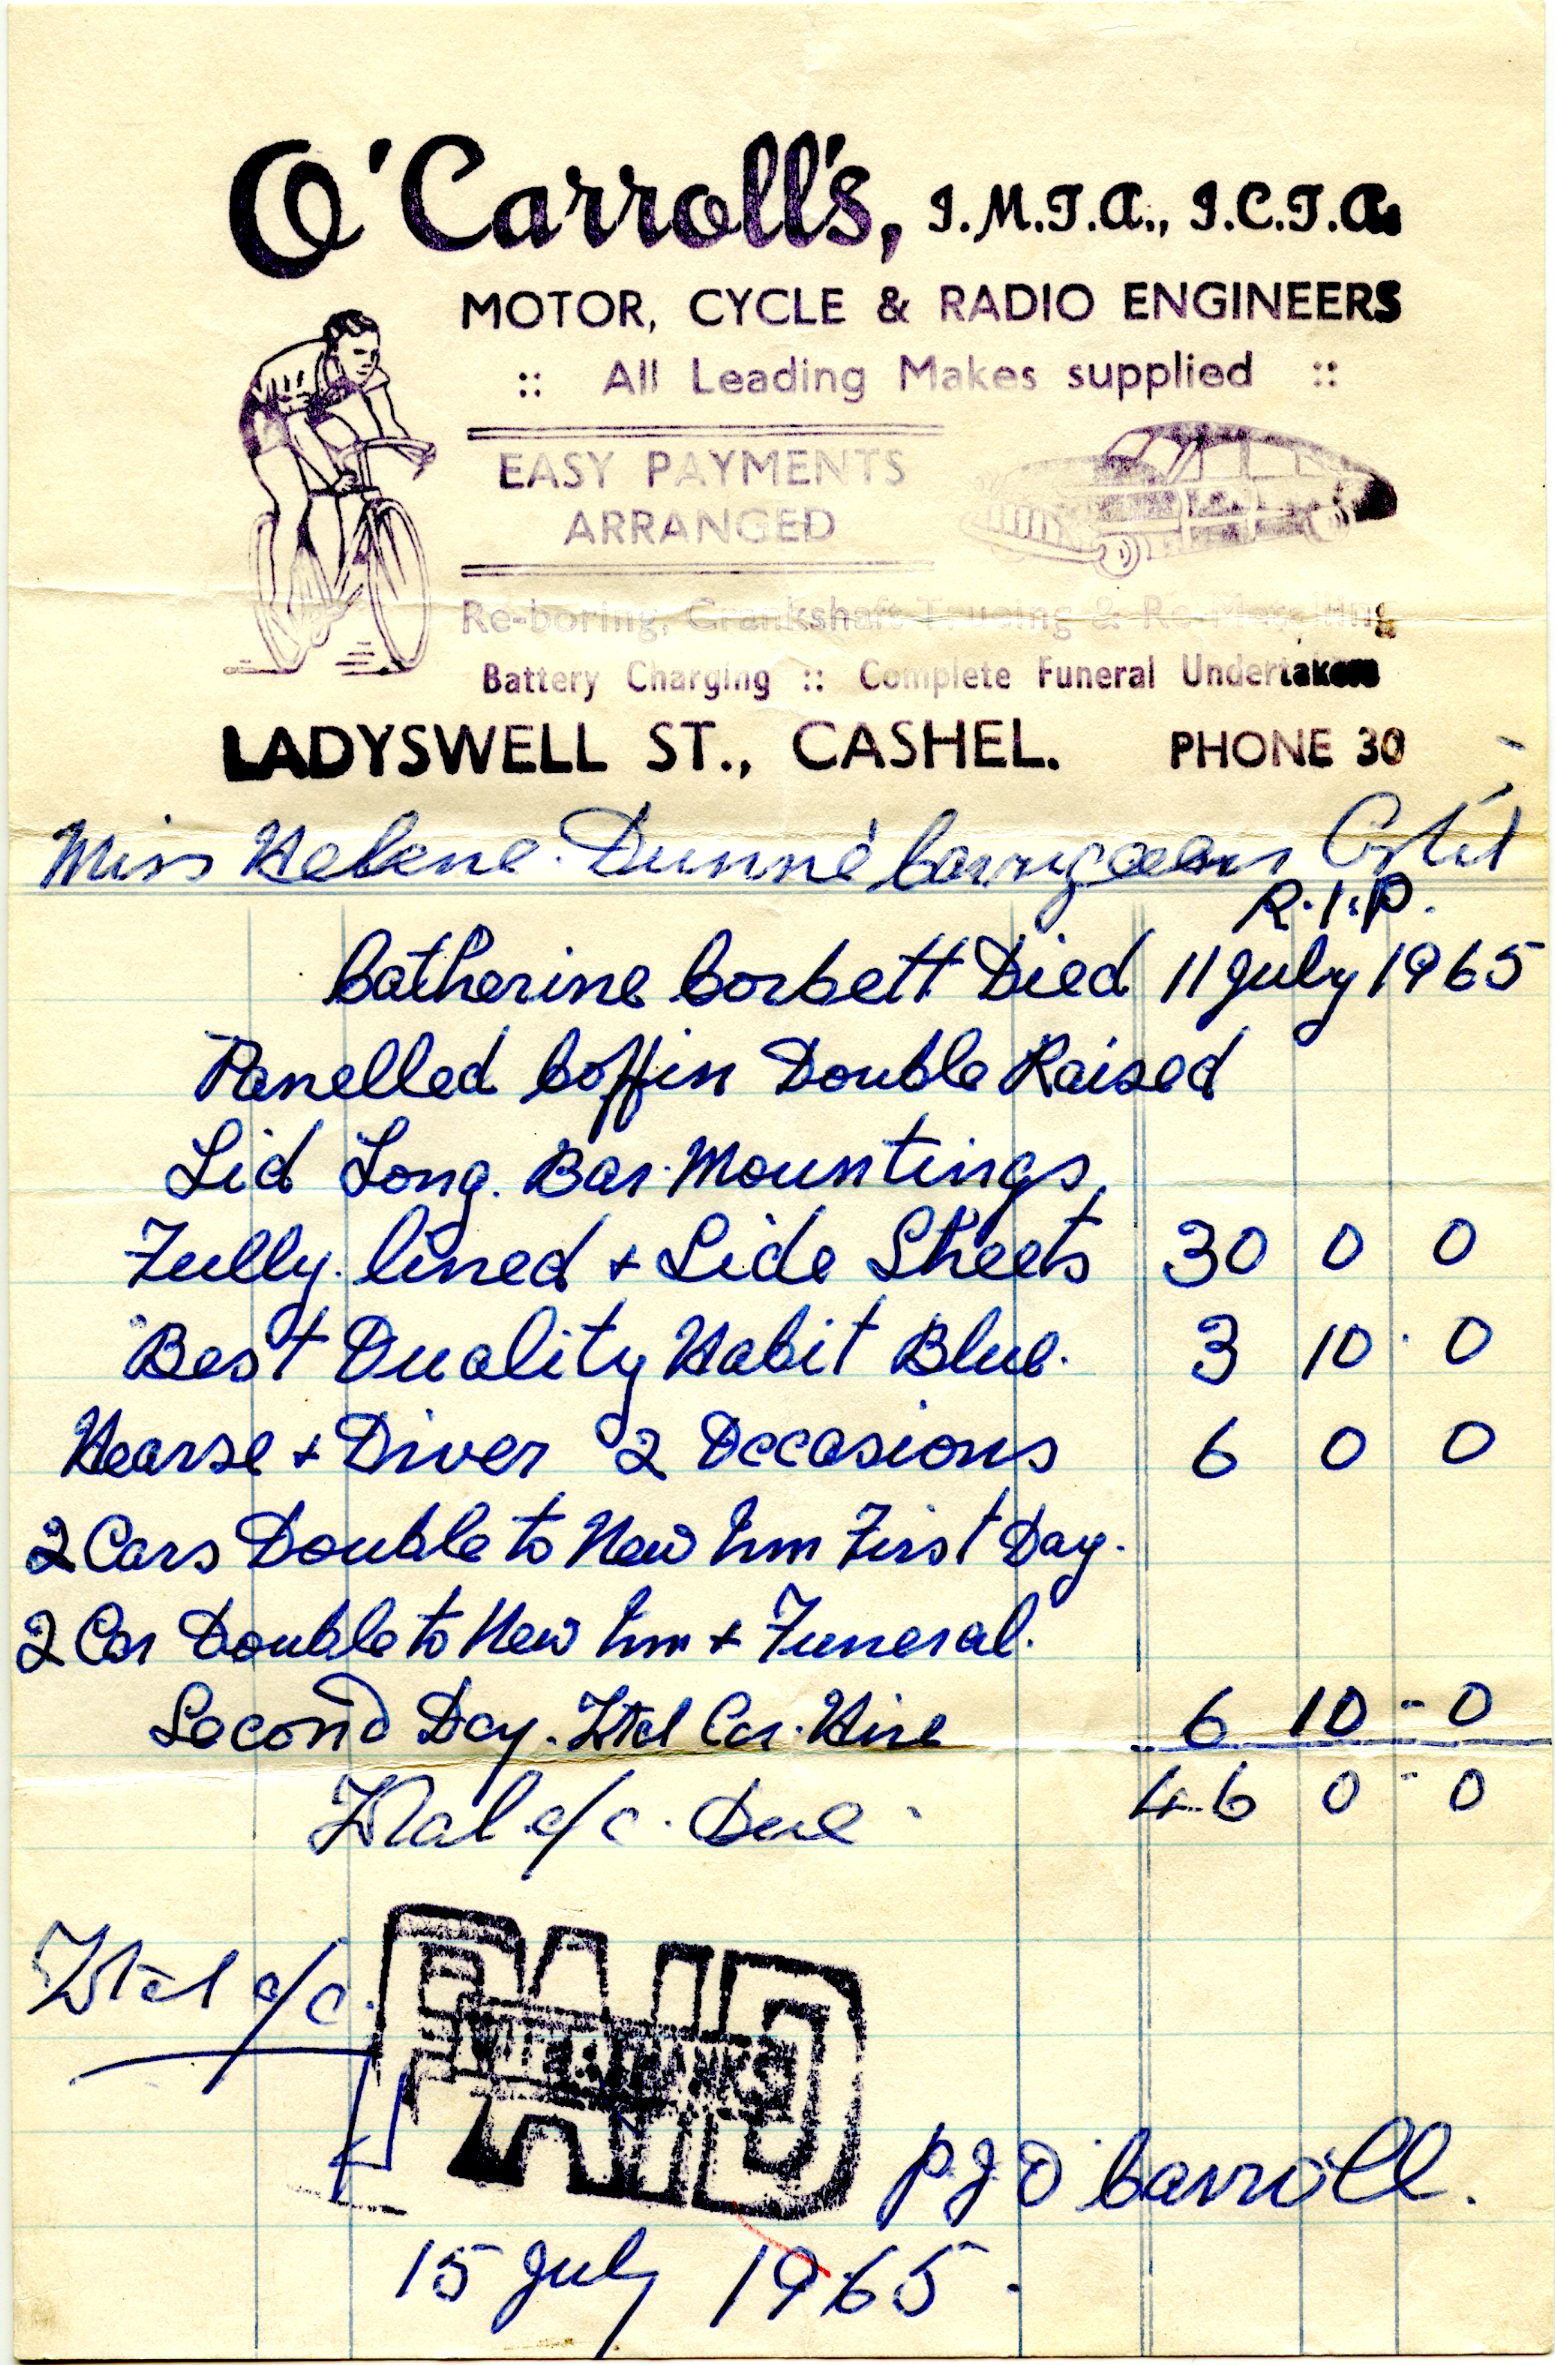 O'Carroll's, I.M.T.A., I.C.T.A.
MOTOR, CYCLE & RADIO ENGINEERS
:: All Leading Makes supplied ::
EASY PAYMENTS
ARRANGED
Re-boring, Crankshaft Trueing & Re-Metalling
Battery Charging :: Complete Funeral Undertakers
LADYSWELL ST., CASHEL. PHONE 30
Miss Helene Dunne
R.I.P.
Catherine Corbett Died 11 July 1965
Panelled Coffin Double Raised
Lid Long Bar Mountings,
Fully lined + Side Sheets 30 0 0
Best Quality Habit Blue. 3 10 0
Hearse + Driver 2 Occasions 6 0 0
2 Cars Double to New Inn First Day.
2 Car Double to New Inn + Funeral.
Second Day. Total Car Hire 6 10 - 0
Total a/c. Due 46 0 - 0
Total a/c.
PAID
WITH THANKS
P J O'Carroll.
15 July 1965.